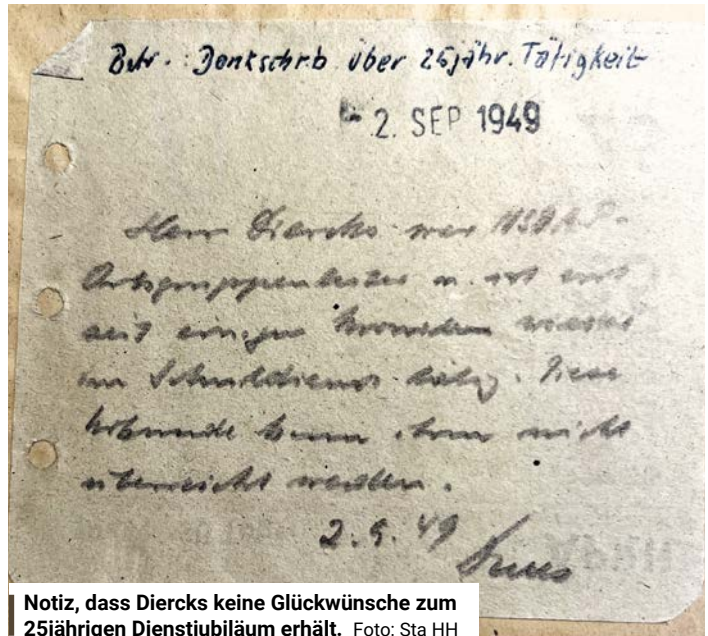 Betr.: Denkschrb über 25jähr. Tätigkeit
2. SEP 1949
Herr Diercks war NSDAP-
Ortsgruppenleiter u. ist erst
seit einigen Monaten wieder
im Schuldienst tätig. Diese
Urkunde kann ihm nicht
überreicht werden.
2.9.49
Notiz, dass Diercks keine Glückwünsche zum
25jährigen Dienstjubiläum erhält. Foto: Sta HH